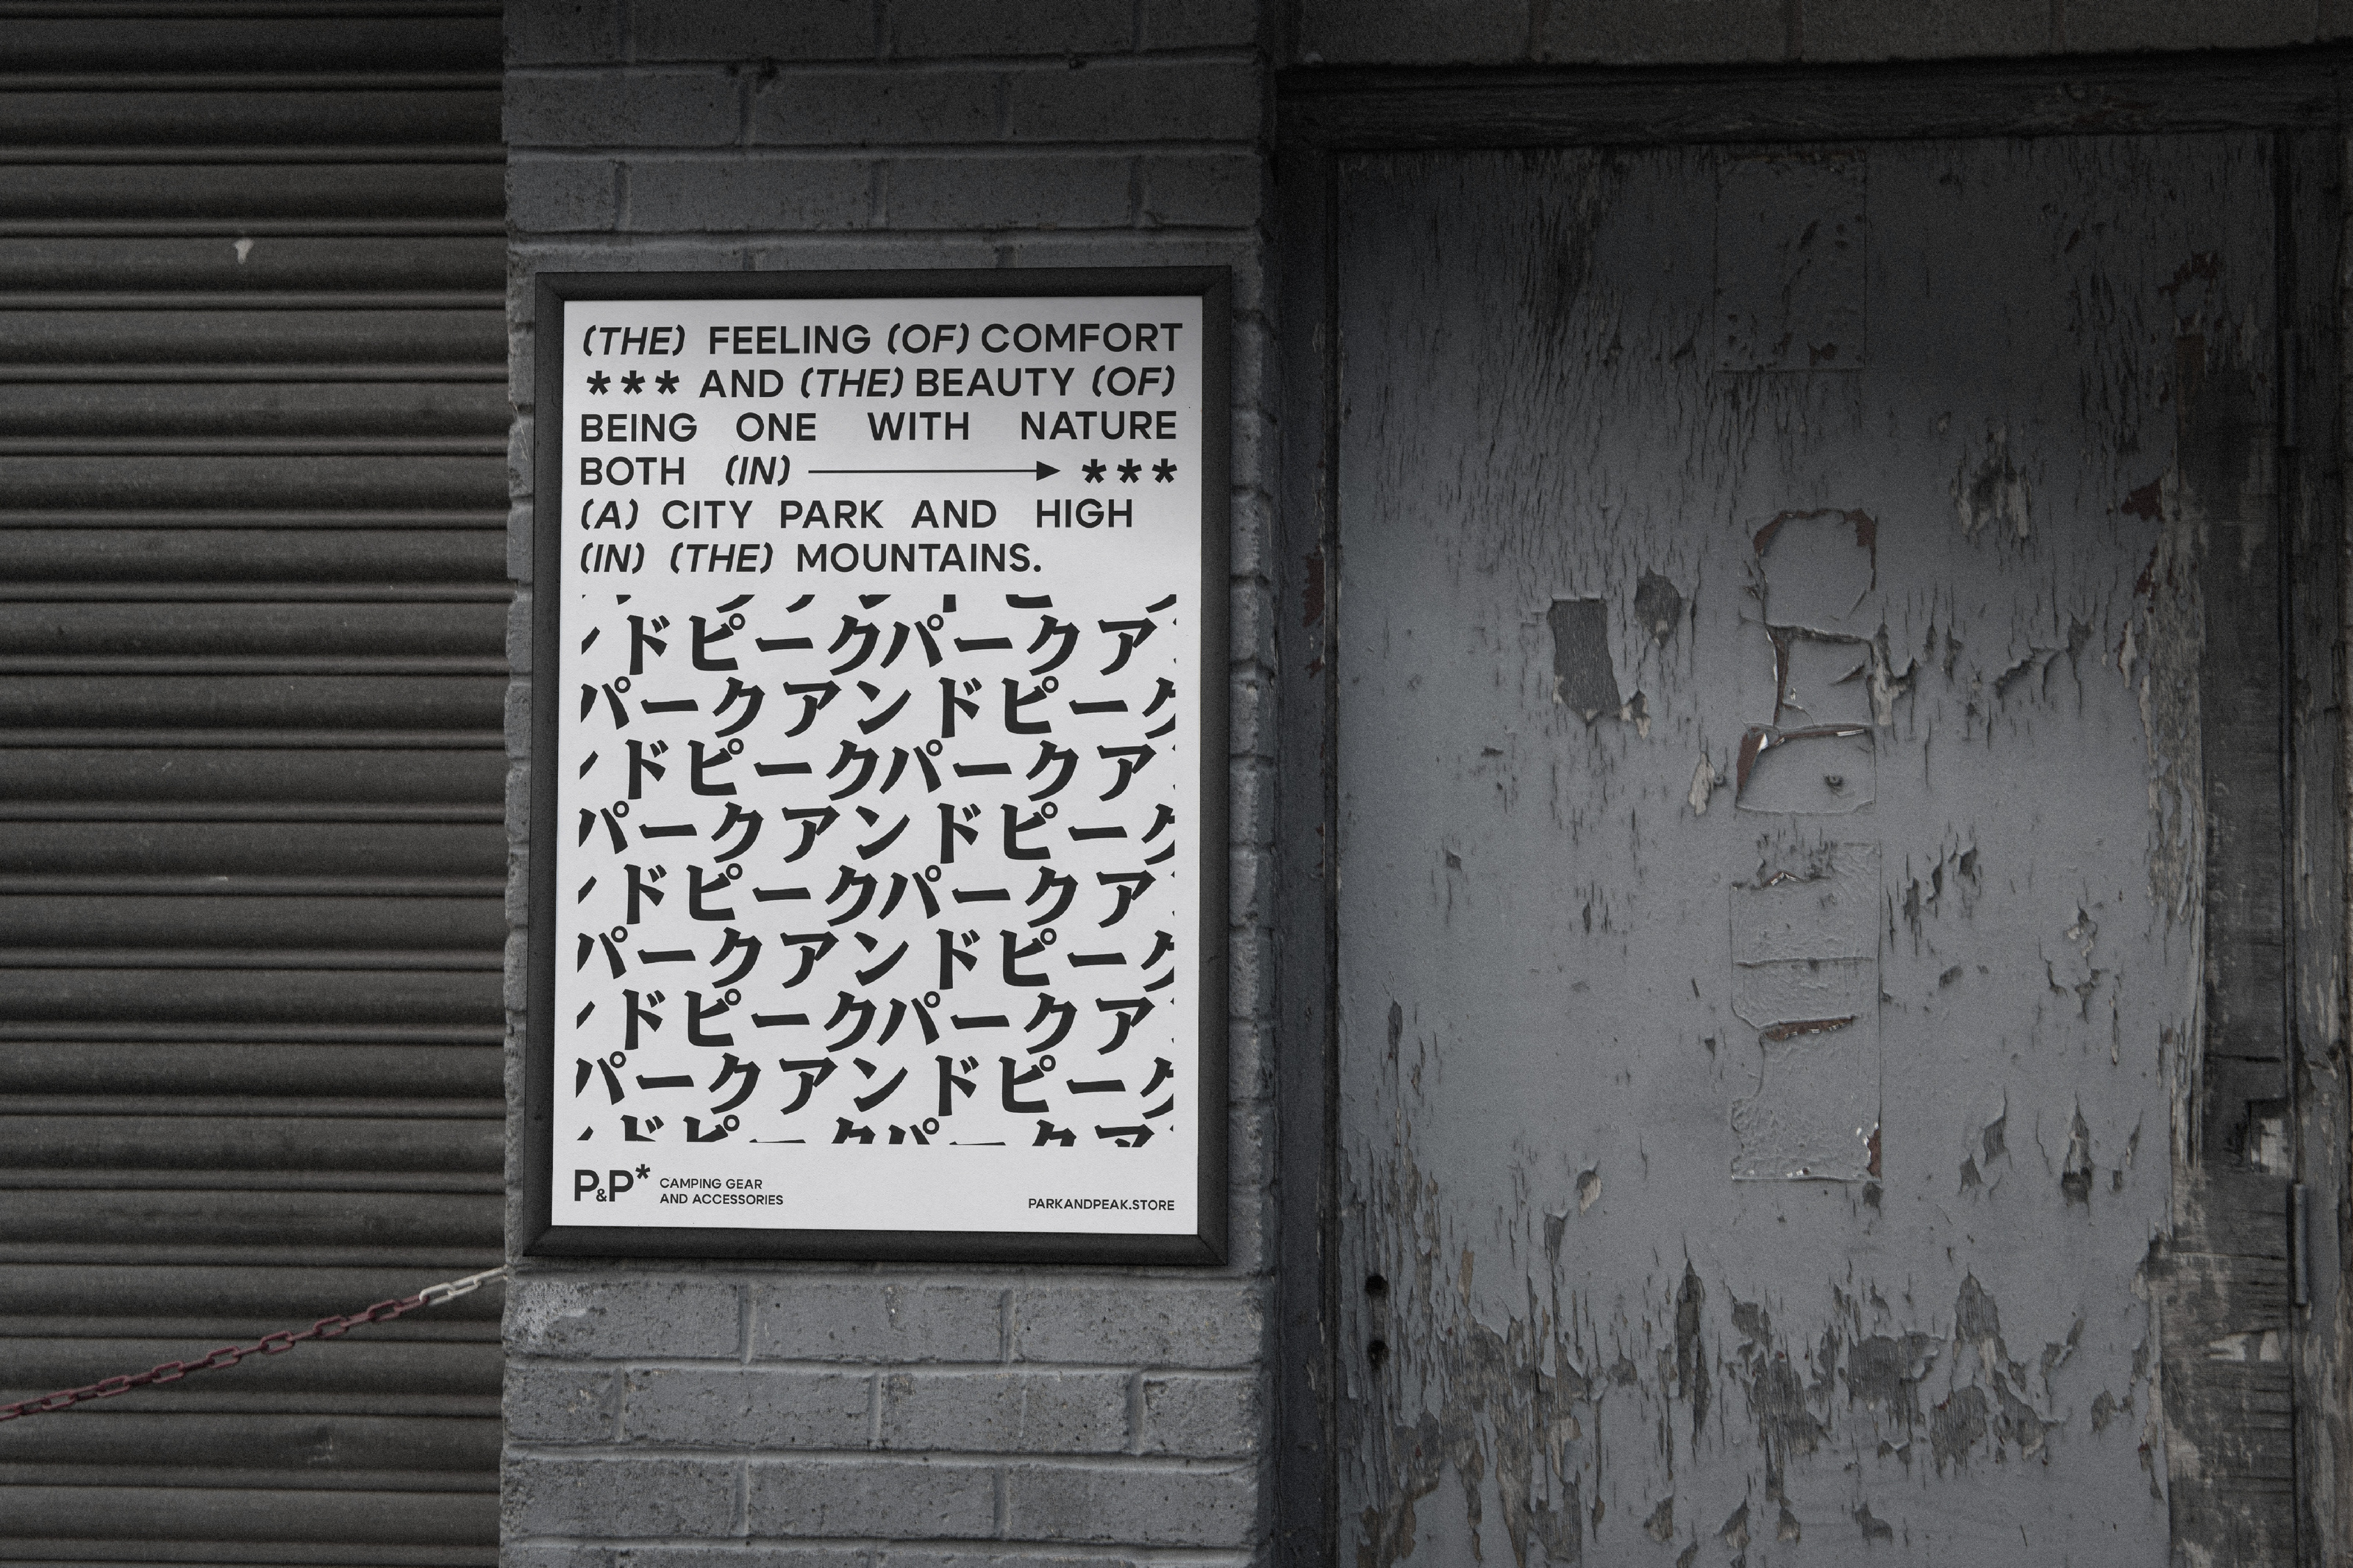 (THE) FEELING (OF) COMFORT
*** AND (THE) BEAUTY (OF)
BEING ONE WITH NATURE
BOTH (IN) → ***
(A) CITY PARK AND HIGH
(IN) (THE) MOUNTAINS.
ドピークパークア
パークアンドピーク
ドピークパークア
パークアンドピーク
ドピークパークア
パークアンドピーク
ドピークパークア
パークアンドピーク
P&P*
CAMPING GEAR
AND ACCESSORIES
PARKANDPEAK.STORE